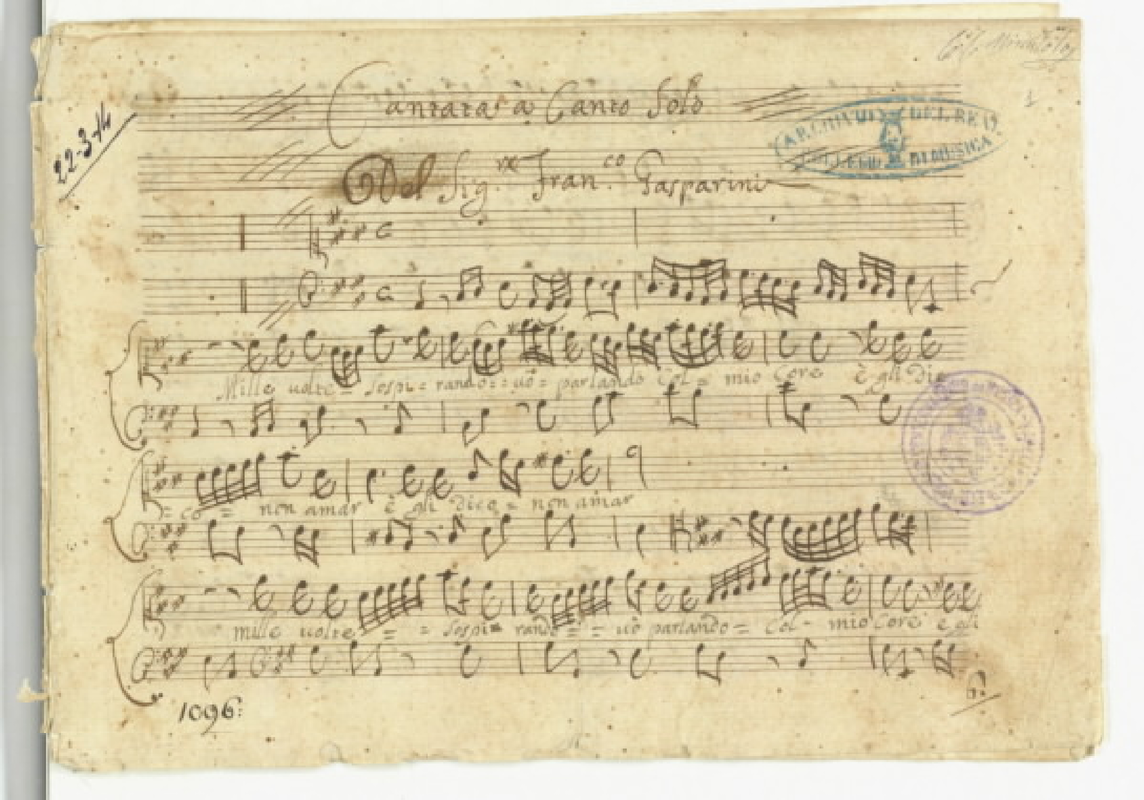 22-3-14
Cantata à Canto Solo
ARCHIVIO DEL REAL
COLLEGIO DI MUSICA
Del Sig.re Fran.co Gasparini
Mille volte = sospi = rando = : uò = parlando Col = mio Core è gli Di=
= co = non amar è gli Dico = non amar
mille volte = = sospi = rando = = uò parlando = Col - mio Core è gli
1096:
6.